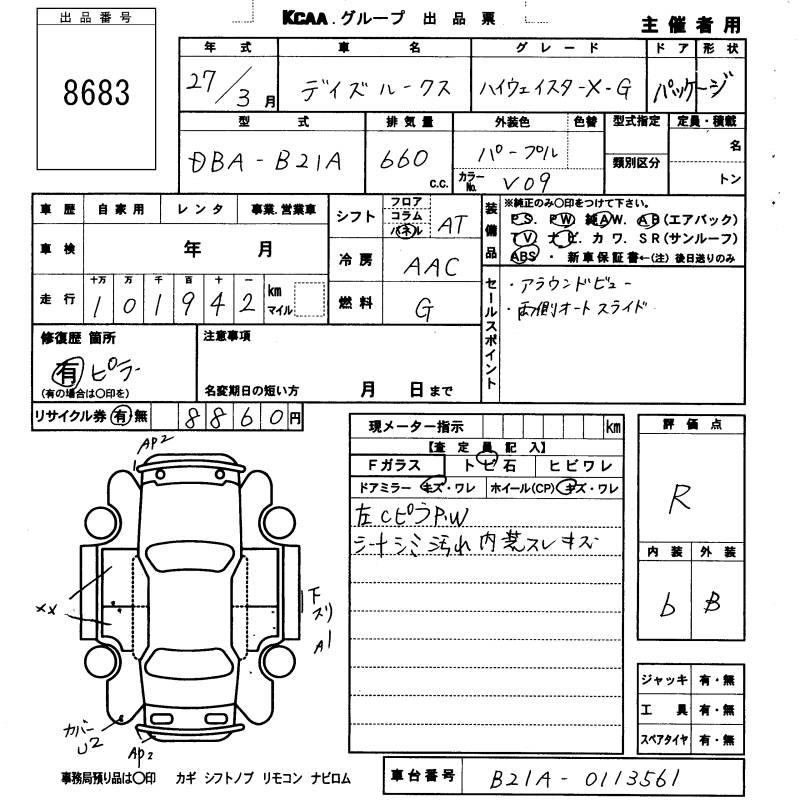 出品番号
8683
KCAA.グループ 出品票
主催者用
年式 車名 グレード ドア 形状
27/3月 デイズルークス ハイウェイスター-X-G パッケージ
型式 排気量 外装色 色替 型式指定 定員・積載
DBA-B21A 660 c.c. パープル 名
カラーNo. V09 類別区分 トン
車歴 自家用 レンタ 事業.営業車
シフト フロア コラム パネル AT
装備品
※純正のみ○印をつけて下さい。
P.S. P.W 純A.W. A.B(エアバック)
T.V. ナビ. カワ. SR(サンルーフ)
ABS ・ 新車保証書←(注) 後日送りのみ
車検 年 月
冷房 AAC
走行 十万 万 千 百 十 一 km マイル
101942
燃料 G
セールスポイント
・アラウンドビュー
・両側オートスライド
修復歴 箇所
有 ピラー
(有の場合は○印を)
注意事項
名変期日の短い方 月 日まで
リサイクル券 有 無 8860円
現メーター指示 km
【査定員記入】
Fガラス トビ石 ヒビワレ
ドアミラー キズ・ワレ ホイール(CP) キズ・ワレ
左Cピラー P.W
シートシミ汚れ 内装スレキズ
評価点
R
内装 外装
b B
AP2
XX
下スリ
A1
カバー
U2
AP2
ジャッキ 有・無
工具 有・無
スペアタイヤ 有・無
事務局預り品は○印 カギ シフトノブ リモコン ナビロム
車台番号 B21A-0113561